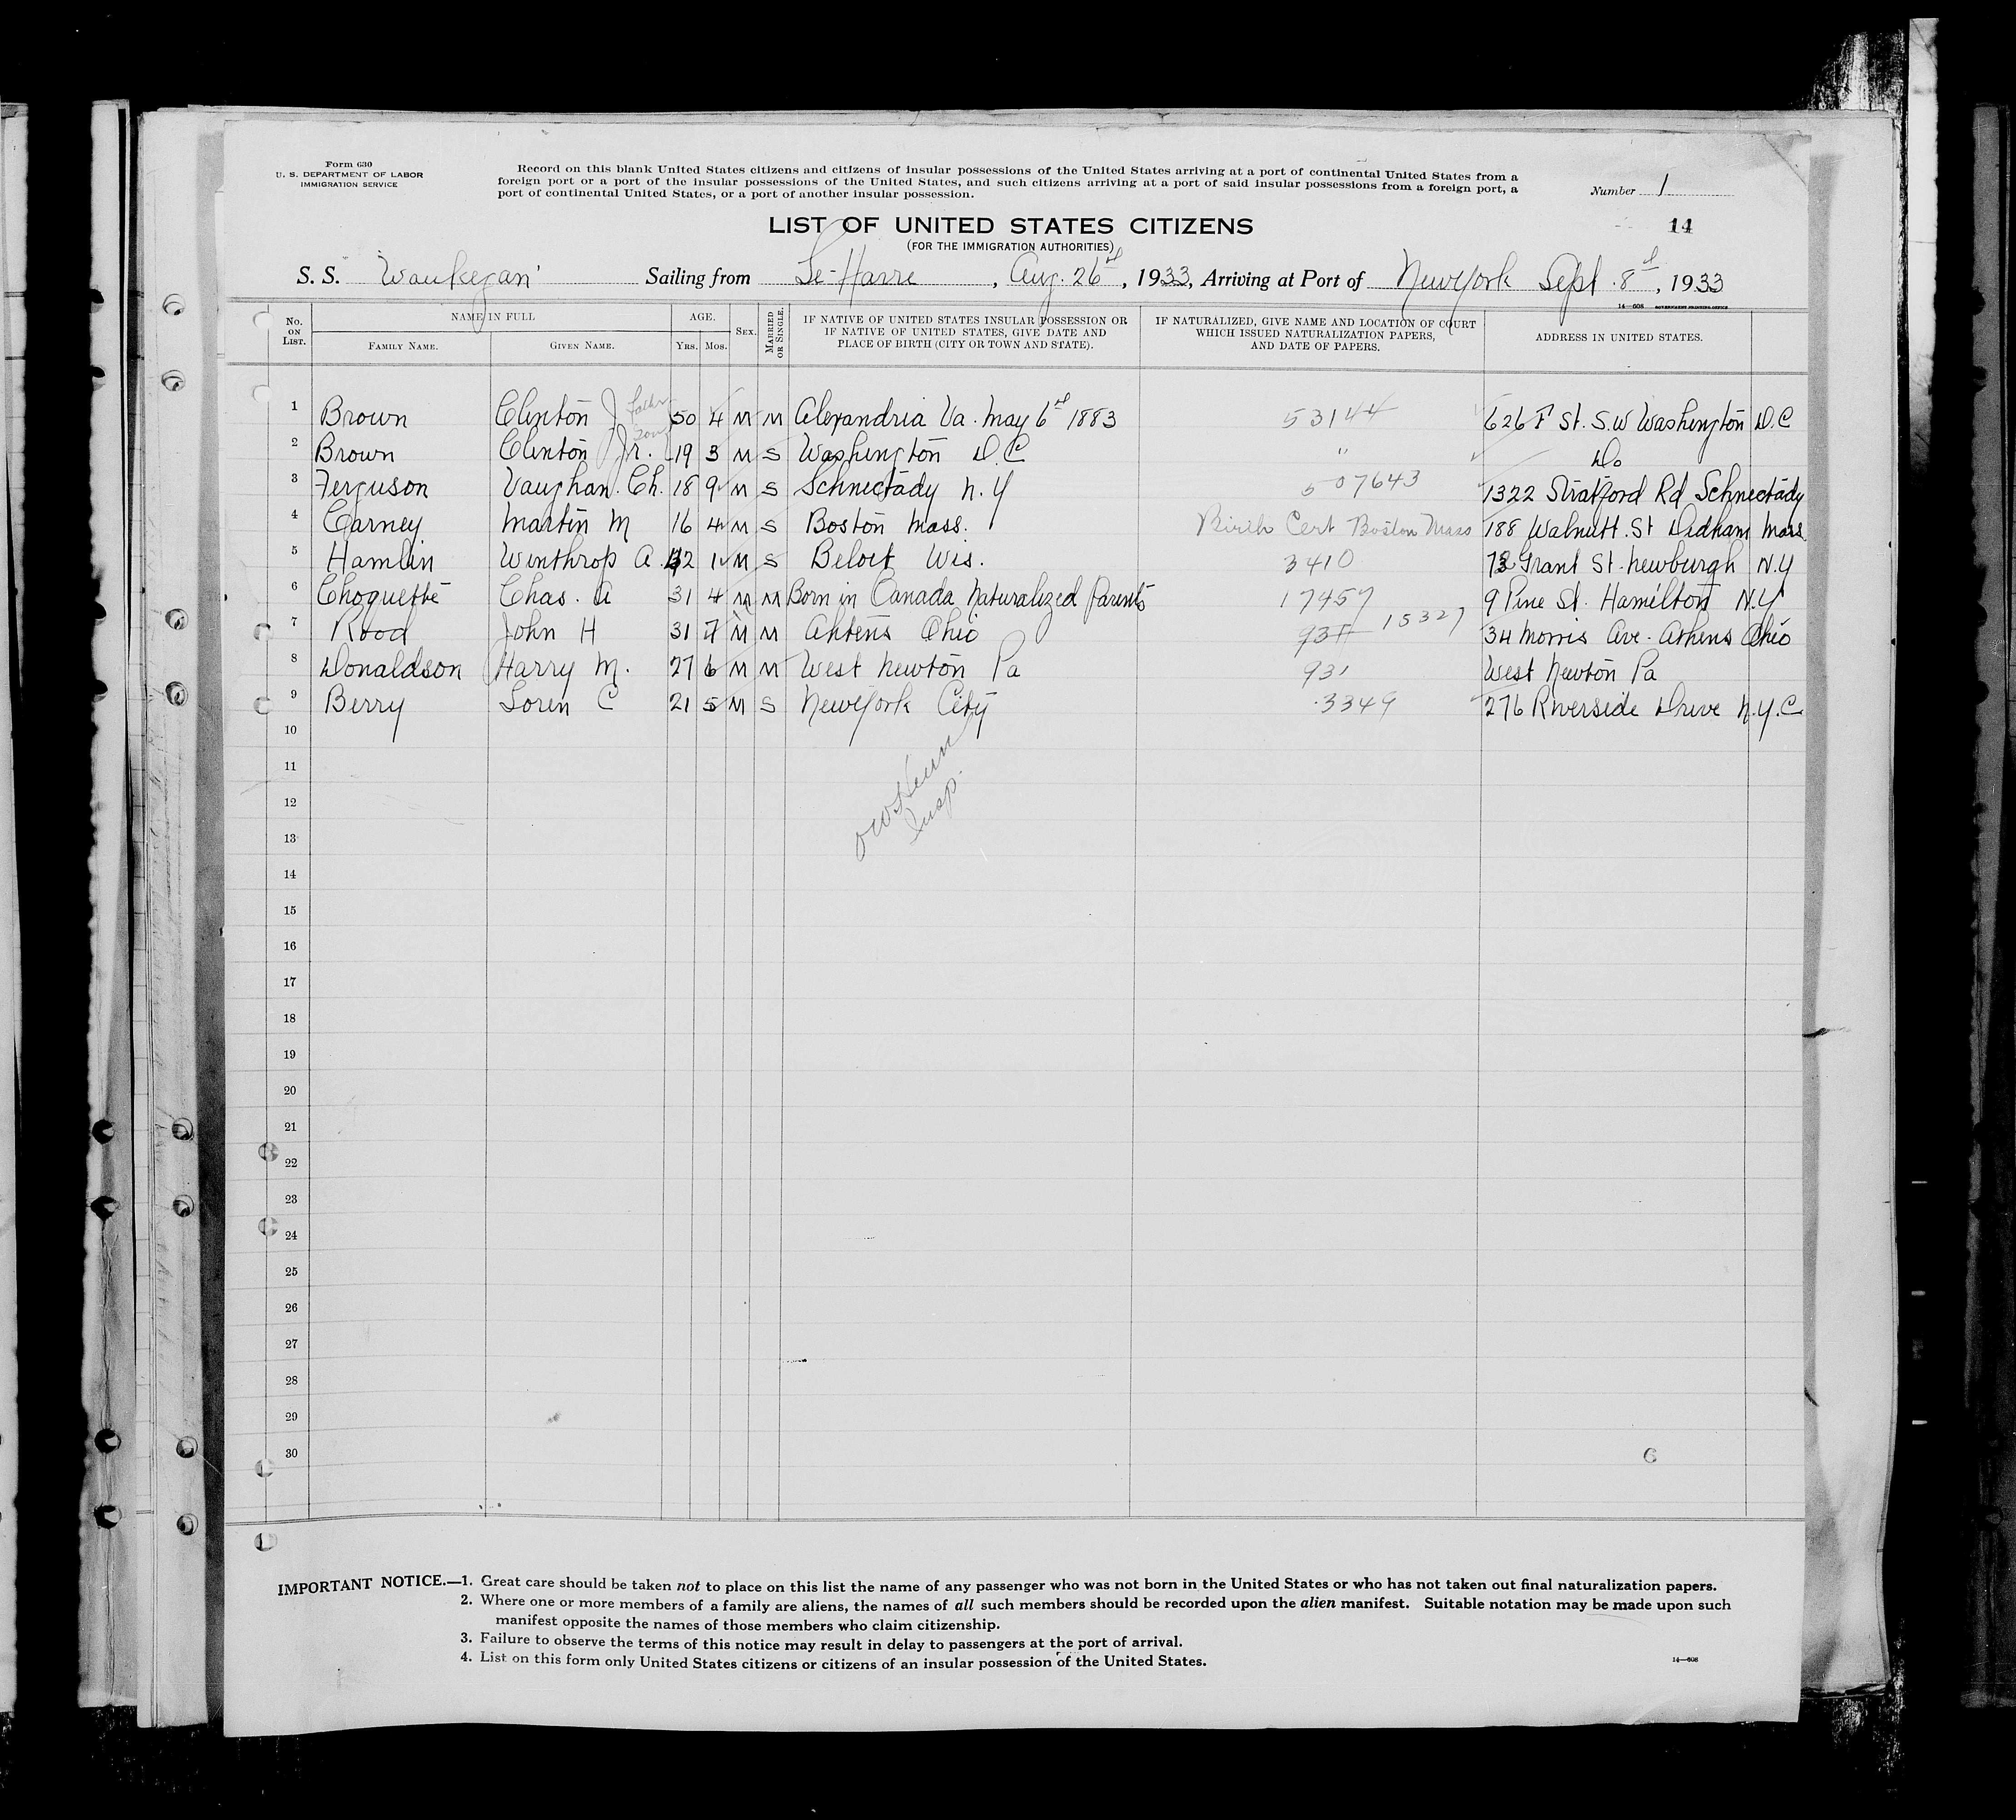 Form 630
U. S. DEPARTMENT OF LABOR
IMMIGRATION SERVICE
Record on this blank United States citizens and citizens of insular possessions of the United States arriving at a port of continental United States from a
foreign port or a port of the insular possessions of the United States, and such citizens arriving at a port of said insular possessions from a foreign port, a
port of continental United States, or a port of another insular possession.
Number 1
14
LIST OF UNITED STATES CITIZENS
(FOR THE IMMIGRATION AUTHORITIES)
S. S. Waukegan Sailing from Le-Havre, Aug. 26, 1933, Arriving at Port of New York Sept. 8, 1933
14—608 GOVERNMENT PRINTING OFFICE
No. ON LIST. NAME IN FULL FAMILY NAME. GIVEN NAME. AGE. YRS. MOS. SEX. MARRIED OR SINGLE. IF NATIVE OF UNITED STATES INSULAR POSSESSION OR IF NATIVE OF UNITED STATES, GIVE DATE AND PLACE OF BIRTH (CITY OR TOWN AND STATE). IF NATURALIZED, GIVE NAME AND LOCATION OF COURT WHICH ISSUED NATURALIZATION PAPERS, AND DATE OF PAPERS. ADDRESS IN UNITED STATES.
1 Brown Clinton J father 50 4 M M Alexandria Va. May 6 1883 53144 626 F St. S.W Washington D.C
2 Brown Clinton Jr. son 19 3 M S Washington D.C " Do
3 Ferguson Vaughan. Ch. 18 9 M S Schnectady N.Y 507643 1322 Stratford Rd Schnectady
4 Carney Martin M 16 4 M S Boston Mass. Birth Cert Boston Mass 188 Walnutt. St Didham Mass.
5 Hamlin Winthrop A. 1 M S Beloit Wis. 3410 73 Grant St. Newburgh N.Y
6 Choquette Chas. A 31 4 M M Born in Canada Naturalized Parents 17457 9 Pine St. Hamilton N.Y
7 Rood John H 31 7 M M Ahtens Ohio 15327 34 Morris Ave. Athens Ohio
8 Donaldson Harry M. 27 6 M M West Newton Pa 931 West Newton Pa
9 Berry Loren C 21 5 M S New York City 3349 276 Riverside Drive N.Y.C
10
11
Insp.
12
13
14
15
16
17
18
19
20
21
22
23
24
25
26
27
28
29
30
6
IMPORTANT NOTICE.—1. Great care should be taken not to place on this list the name of any passenger who was not born in the United States or who has not taken out final naturalization papers.
2. Where one or more members of a family are aliens, the names of all such members should be recorded upon the alien manifest. Suitable notation may be made upon such
manifest opposite the names of those members who claim citizenship.
3. Failure to observe the terms of this notice may result in delay to passengers at the port of arrival.
4. List on this form only United States citizens or citizens of an insular possession of the United States.
14—608